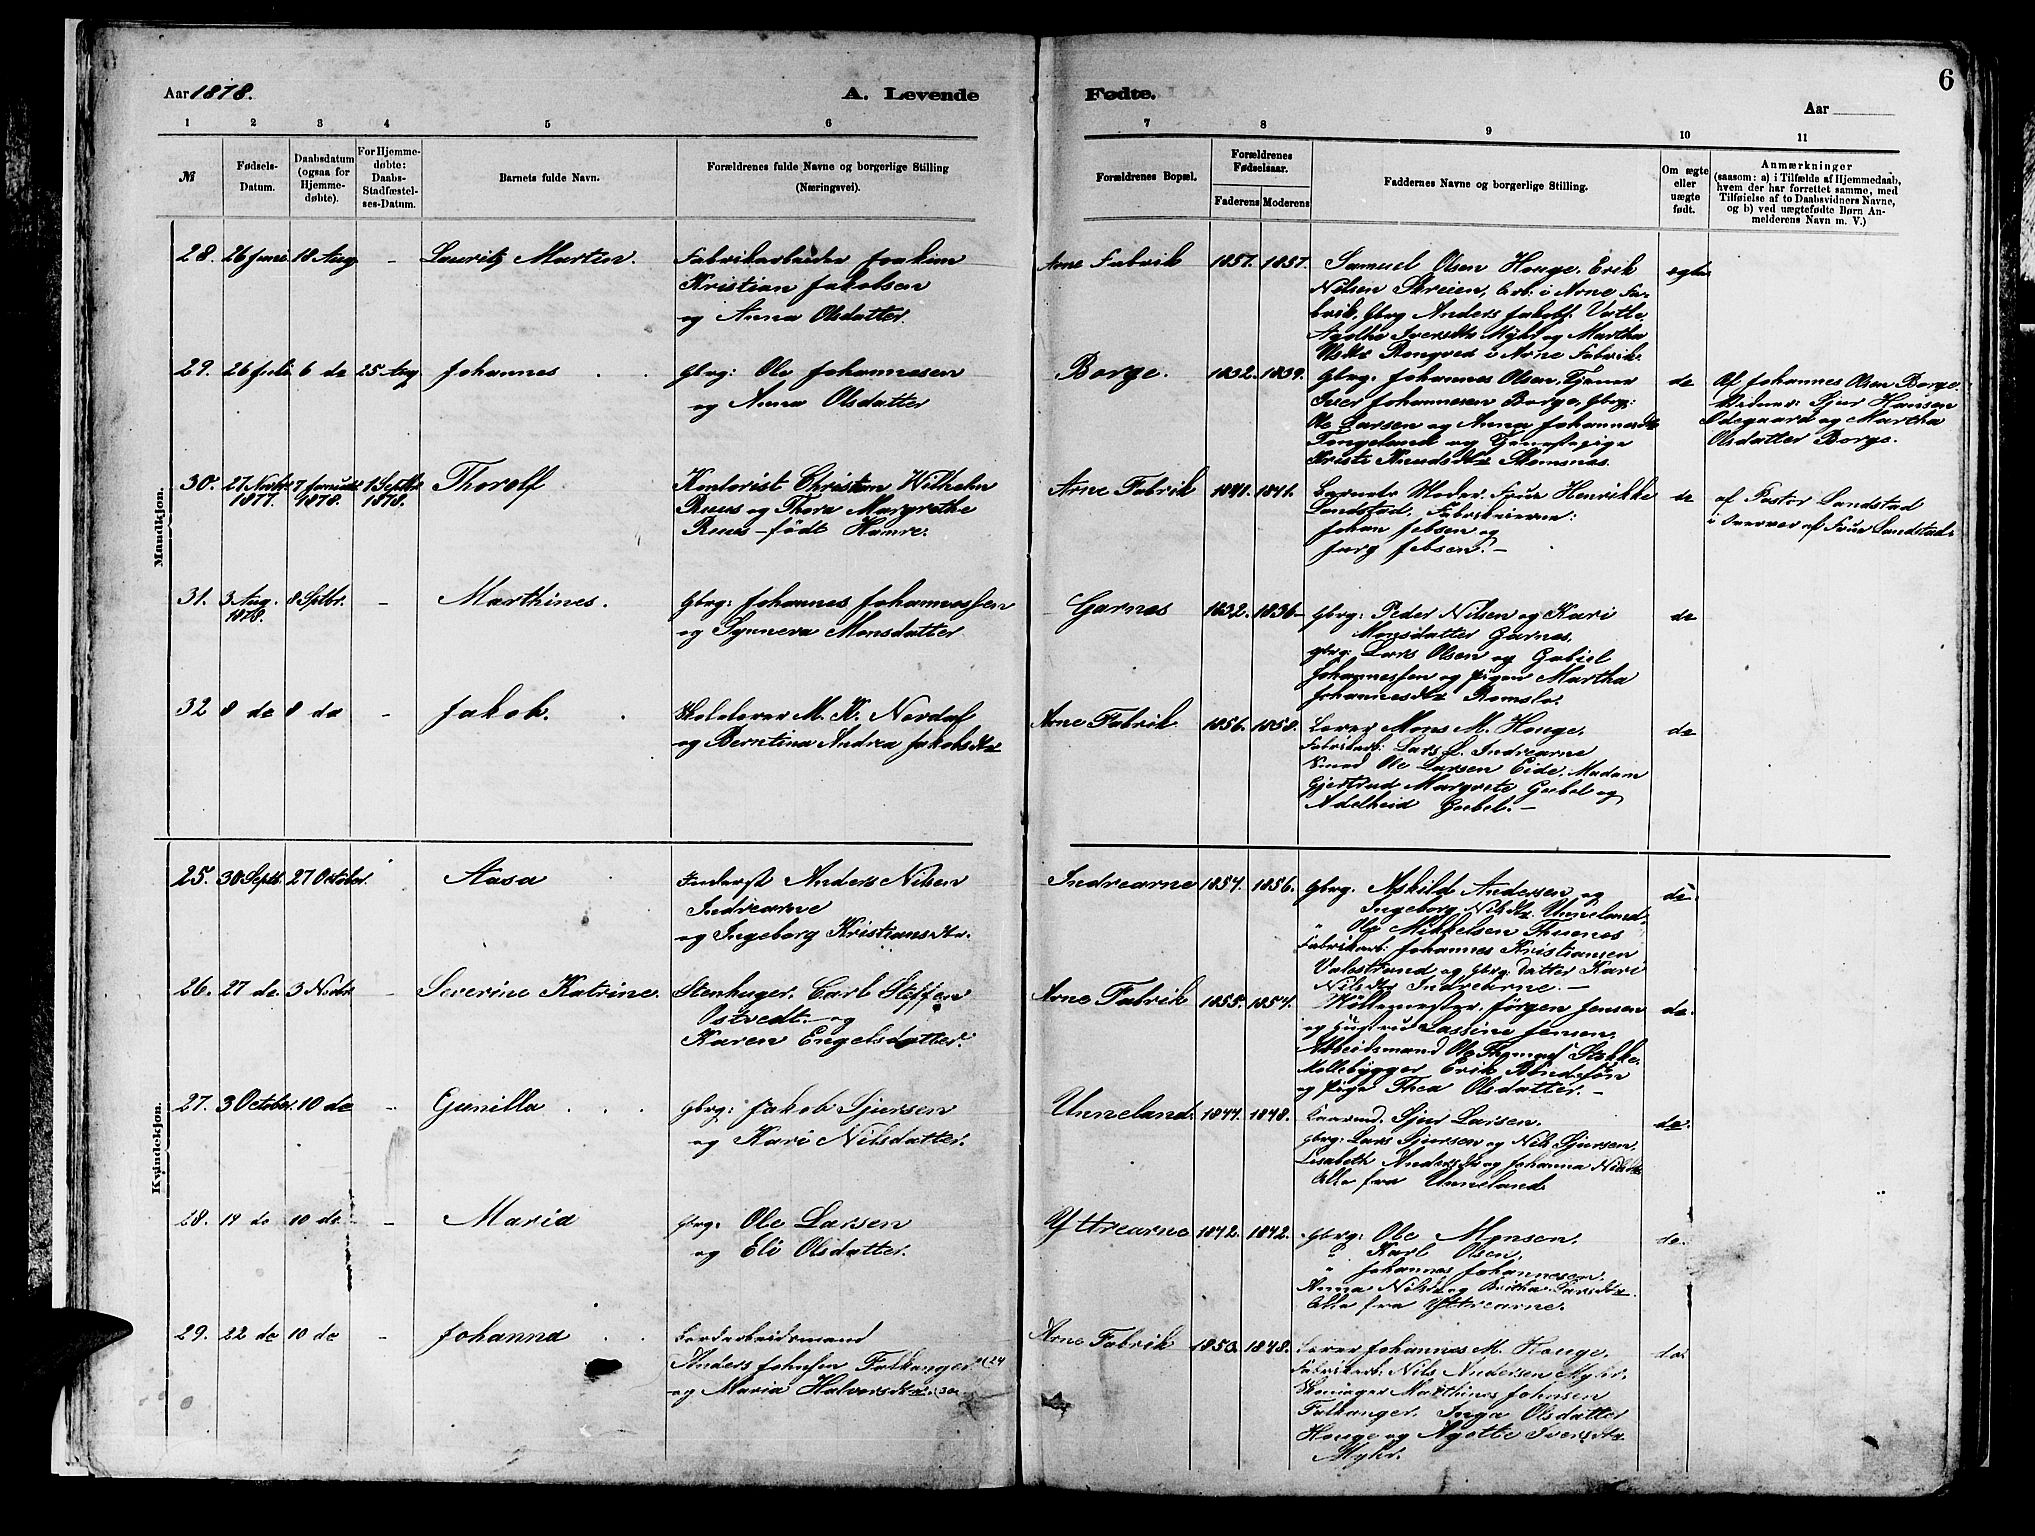 6
Aar 1878.
A. Levende
Fødte.
Aar
1 2 3 4 5 6
7 8 9 10 11
№
Fødsels-
Datum.
Daabsdatum
(ogsaa for
Hjemme-
døbte).
For Hjemme-
døbte:
Daabs-
Stadfæstel-
ses-Datum.
Barnets fulde Navn.
Forældrenes fulde Navne og borgerlige Stilling
(Næringsvei).
Forældrenes Bopæl.
Forældrenes
Fødselsaar.
Faderens Moderens
Faddernes Navne og borgerlige Stilling.
Om ægte
eller
uægte
født.
Anmærkninger
(saasom: a) i Tilfælde af Hjemmedaab,
hvem der har forrettet samme, med
Tilføielse af to Daabsvidners Navne,
og b) ved uægtefødte Børn An-
melderens Navn m. V.)
Mandkjøn.
28. 26 Juni 18 Aug - Lauritz Martin.
Fabrikarbeider Joakim
Kristian Jakobsen
og Anna Olsdatter.
Arne Fabrik 1857. 1857.
Samuel Olsen Houge. Erik
Nilsen Skreien, Arb: i Arne Fa-
brik, Gbrg Anders Jakobs. Vatle,
Agothe Iversdtr Myhr og Martha
Rongved i Arne Fabrik.
ægte
29. 26 Juli 6 do 25 Aug Johannes
Gbrg: Ole Johannesen
og Anna Olsdatter
Borge. 1832. 1839.
Gbrg: Johannes Olsen, Tjener
Iver Johannesen Borge, Gbrg:
Ole Larsen og Anna Johannesdtr
Tengeland og Tjenestepige
Kristi Knudsdtr Stomsnes.
do
Af Johannes Olsen Borge.
Vidner: Sjur Hansen
Ødegaard og Martha
Olsdatter Borge.
30. 27 Novbr. 1877. 7 Januar 1878. 1 Septbr 1878. Thorolf
Kontorist Christian Wilhelm
Ruus og Thora Margrethe
Ruus - født Hamre.
Arne Fabrik 1841. 1841.
Barnets Moder. Frue Henrikke
Landstad, Fabrikeierne:
Johan Jebsen og
Jurg Jebsen. -
do
af Pastor Landstad
i Nærvær af Frue Landstad.
31. 3 Aug. 1878. 8 Sptbr. - Marthines.
Gbrg: Johannes Johannessen
og Synneva Monsdatter
Garnes 1832. 1836.
Gbrg: Peder Nilsen og Kari
Monsdatter Garnes,
gbrg: Lars Olsen og Gabiel
Johannessen og Pigen Martha
Johannesdtr Romslo.
do
32 8 do 8 do - Jakob.
Skolelærer M. K. Nordaf
og Berntina Andrea Jakobsdtr
Arne Fabrik 1856. 1858.
Lærer Mons M. Houge.
Fabrikarb: Lars L. Indrearne
Smed Ole Larsen Eide, Madam
Gjertrud Margrete Giebel og
Adelheid Giebel. -
do
Kvindekjøn.
25. 30 Septb. 27 October. Aasa
Inderst Anders Nilsen
Indrearne
og Ingeborg Kristiansdtr.
Indrearne 1854. 1856.
Gbrg. Askild Andersen og
Ingeborg Nilsdtr Unneland.
" Ole Mikkelsen Thuenes
Fabrikarb: Johannes Kristiansen
Valestrand og Gbrg: datter Kari
Nilsdtr Indrearne. -
do.
26. 27 do 3 Novbr - Severine Katrine.
Stenhuger. Carl Steffen
Ostvedt. - og
Karen Engelsdatter.
Arne Fabrik 1855. 1854.
Møllemester Jørgen Jensen
og Hustrue Lassine Jensen,
Arbeidsmand Ole Thomas Stokke.
Møllebygger Erik
og Pige Thea Olsdatter. -
do.
27. 3 October. 10 do - Gunilla
Gbrg: Jakob Sjursen
og Kari Nilsdatter.
Unneland. 1844. 1848.
Kaarmd. Sjur Larsen.
Gbrg: Lars Sjursen og Nils Sjursen,
Lisabeth Andersdtr og Johanna Nilsdtr
Alle fra Unneland.
do.
28. 14 do 10 do - Maria
Gbrg: Ole Larsen
og Eli Olsdatter.
Yttrearne 1842. 1842.
Gbrg: Ole Monsen.
" Karl Olsen,
" Johannes Johannesen.
Anna Nilsdtr og Britha Larsdtr.
Alle fra Yttrearne.
do.
29. 22 do 10 do - Johanna
Jordarbeidsmand
Anders Johnsen Falkanger
og Maria Halvorsdtr
Arne Fabrik 1853. 1848.
Lærer Johannes M. Houge.
Fabrikarb: Nils Andersen Myhr,
Skomager Marthines Johnsen
Falkanger. Inga Olsdatter
Houge og Agotte Iversdtr
Myhr.
do.